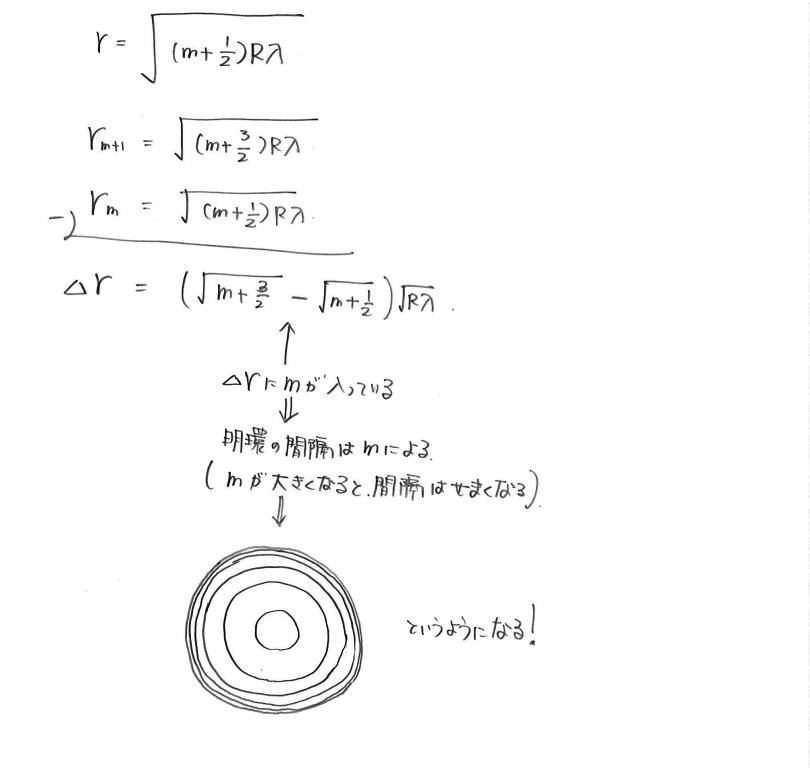 r = √(m+1/2)Rλ
r m+1 = √(m+3/2)Rλ
-) r m = √(m+1/2)Rλ.
△r = (√m+3/2 - √m+1/2)√Rλ.
↑
△rにmが入っている
⇓
明環の間隔はmによる.
(mが大きくなると、間隔はせまくなる).
⇓
というようになる!